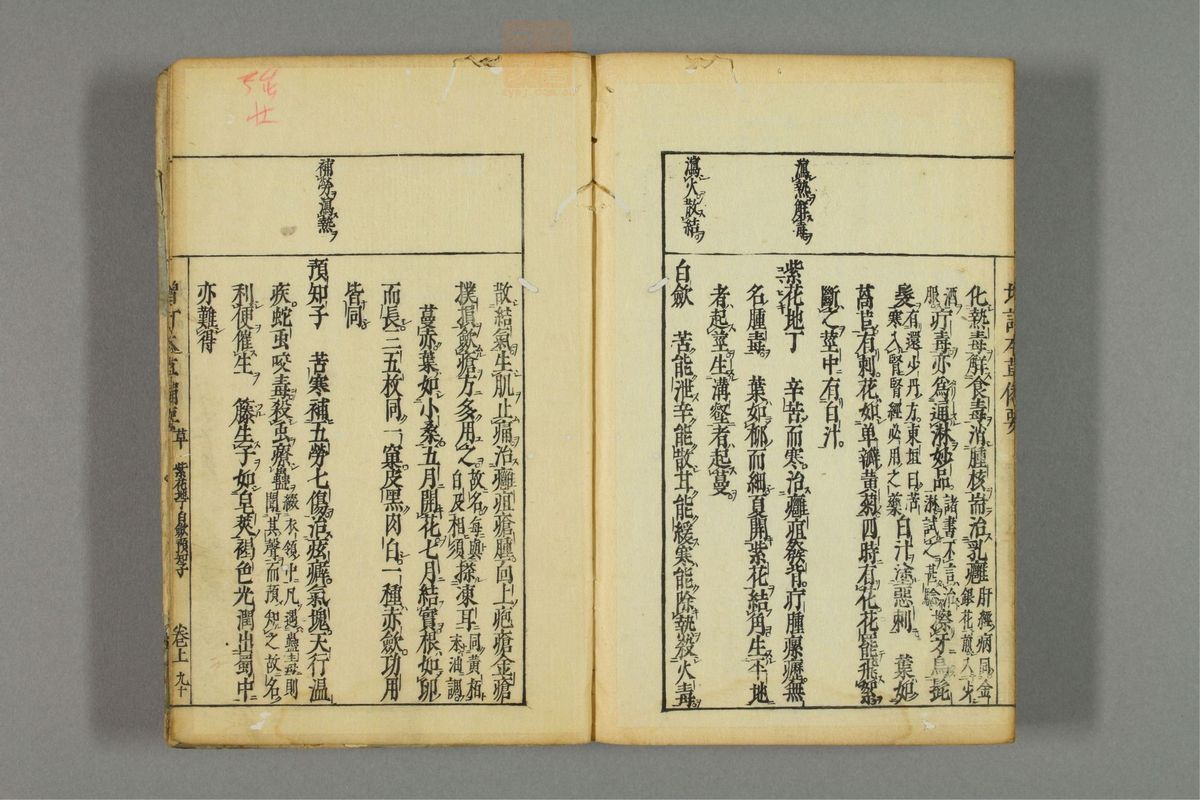 化熱毒解食毒消腫核耑治乳癰肝經病同金銀花煎入少
酒服疔毒亦爲通淋妙品諸書不言治淋試之甚驗擦牙烏髭
髮有還少丹方東垣曰苦寒入腎腎經必用之藥白汁塗惡刺　葉如
萵苣有刺花如单瓣黄菊四時有花花罷飛絮
斷之莖中有白汁
瀉熱解毒
紫花地丁　辛苦而寒治癰疽發背疔腫瘰癧無
名腫毒　葉如柳而細夏開紫花結角生平地
者起莖生溝壑者起蔓
瀉火散結
白歛　苦能泄辛能散甘能緩寒能除熱殺火毒
散結氣生肌止痛治癰疽瘡腫面上疱瘡金瘡
撲損歛瘡方多用之故名每與白及相須搽凍耳同黄栢末油調
蔓赤葉如小桑五月開花七月結實根如卵
而長三五枚同一窠皮黑肉白一種赤歛功用
皆同
補勞瀉熱
預知子　苦寒補五勞七傷治痃癖氣塊天行温
疾蛇虫咬毒殺虫療蠱綴衣領中凡遇蠱毒則聞其聲而預知之故名
利便催生　籐生子如皂莢褐色光潤出蜀中
亦難得
草　紫花地丁白歛預知子
卷上　九十
強
壮